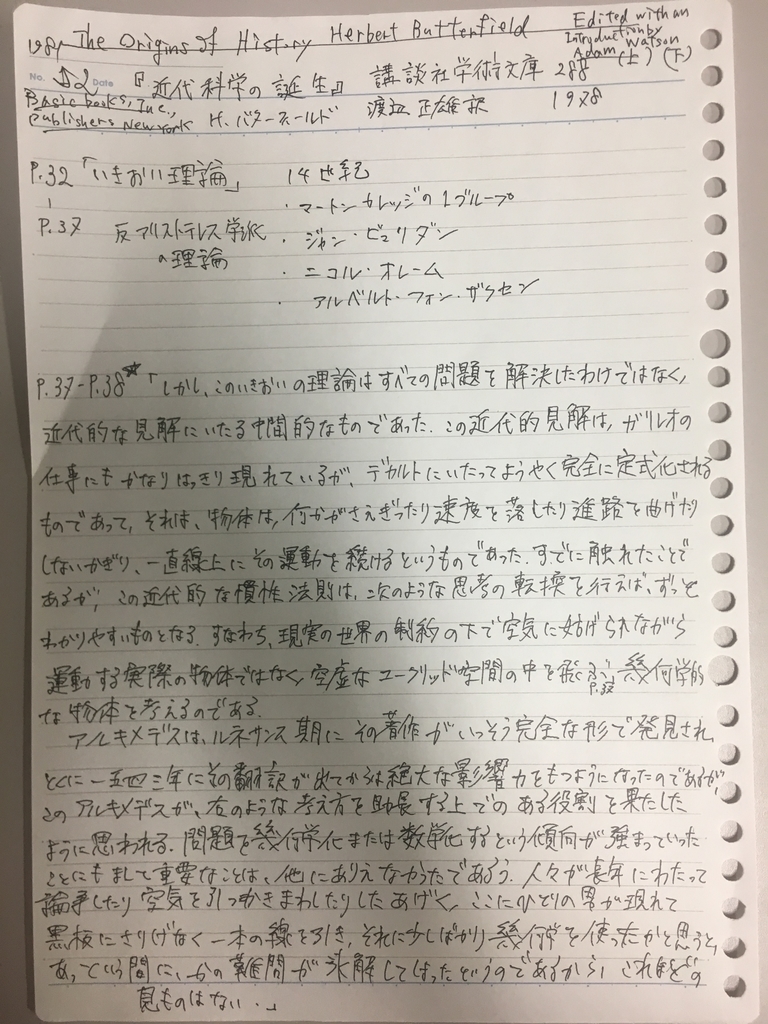 1981 The Origins of History Herbert Butterfield Edited with an
Introduction by
Adam Watson
No. 52 Date 『近代科学の誕生』 講談社学術文庫 288 (上) (下)
Basic books, Inc.,
Publishers New York H. バターフィールド 渡辺 正雄 訳 1978
P.32 「いきおい理論」 14世紀
| ・マートン カレッジの1グループ
P.37 反アリストテレス学派 ・ジャン・ビュリダン
の理論 ・ニコル・オレーム
・アルベルト・フォン・ザクセン
P.37-P.38☆ 「しかし、このいきおいの理論はすべての問題を解決したわけではなく、
近代的な見解にいたる中間的なものであった。この近代的見解は、ガリレオの
仕事にもかなりはっきり現れているが、デカルトにいたってようやく完全に定式化される
ものであって、それは、物体は、何かがさえぎったり速度を落したり進路を曲げたり
しないかぎり、一直線上にその運動を続けるというものであった。すでに触れたことで
あるが、この近代的な慣性法則は、次のような思考の転換を行えば、ずっと
わかりやすいものとなる。すなわち、現実の世界の制約の下で空気に妨げられながら
運動する実際の物体ではなく、空虚なユークリッド空間の中を飛ぶ、幾何学的
P.38
な物体を考えるのである。
アルキメデスは、ルネサンス期にその著作がいっそう完全な形で発見され、
とくに一五四三年にその翻訳が出てからは絶大な影響力をもつようになったのであるが、
このアルキメデスが、右のような考え方を助長する上でのある役割を果たした
ように思われる。問題を幾何学化または数学化するという傾向が強まっていった
ことにもまして重要なことは、他にありえなかったであろう。人々が長年にわたって
論争したり空気を引っかきまわしたりしたあげく、ここにひとりの男が現れて
黒板にさりげなく一本の線を引き、それに少しばかり幾何学を使ったかと思うと、
あっという間に、かの難問が氷解してしまったというのであるから、これほどの
見ものはない。」